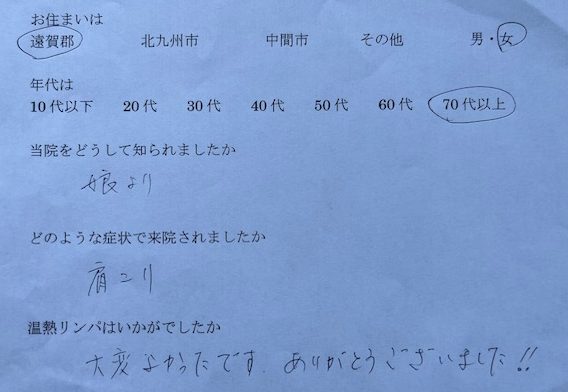 お住まいは
遠賀郡 北九州市 中間市 その他 男・女
年代は
10代以下 20代 30代 40代 50代 60代 70代以上
当院をどうして知られましたか
娘より
どのような症状で来院されましたか
肩こり
温熱リンパはいかがでしたか
大変よかったです。ありがとうございました!!